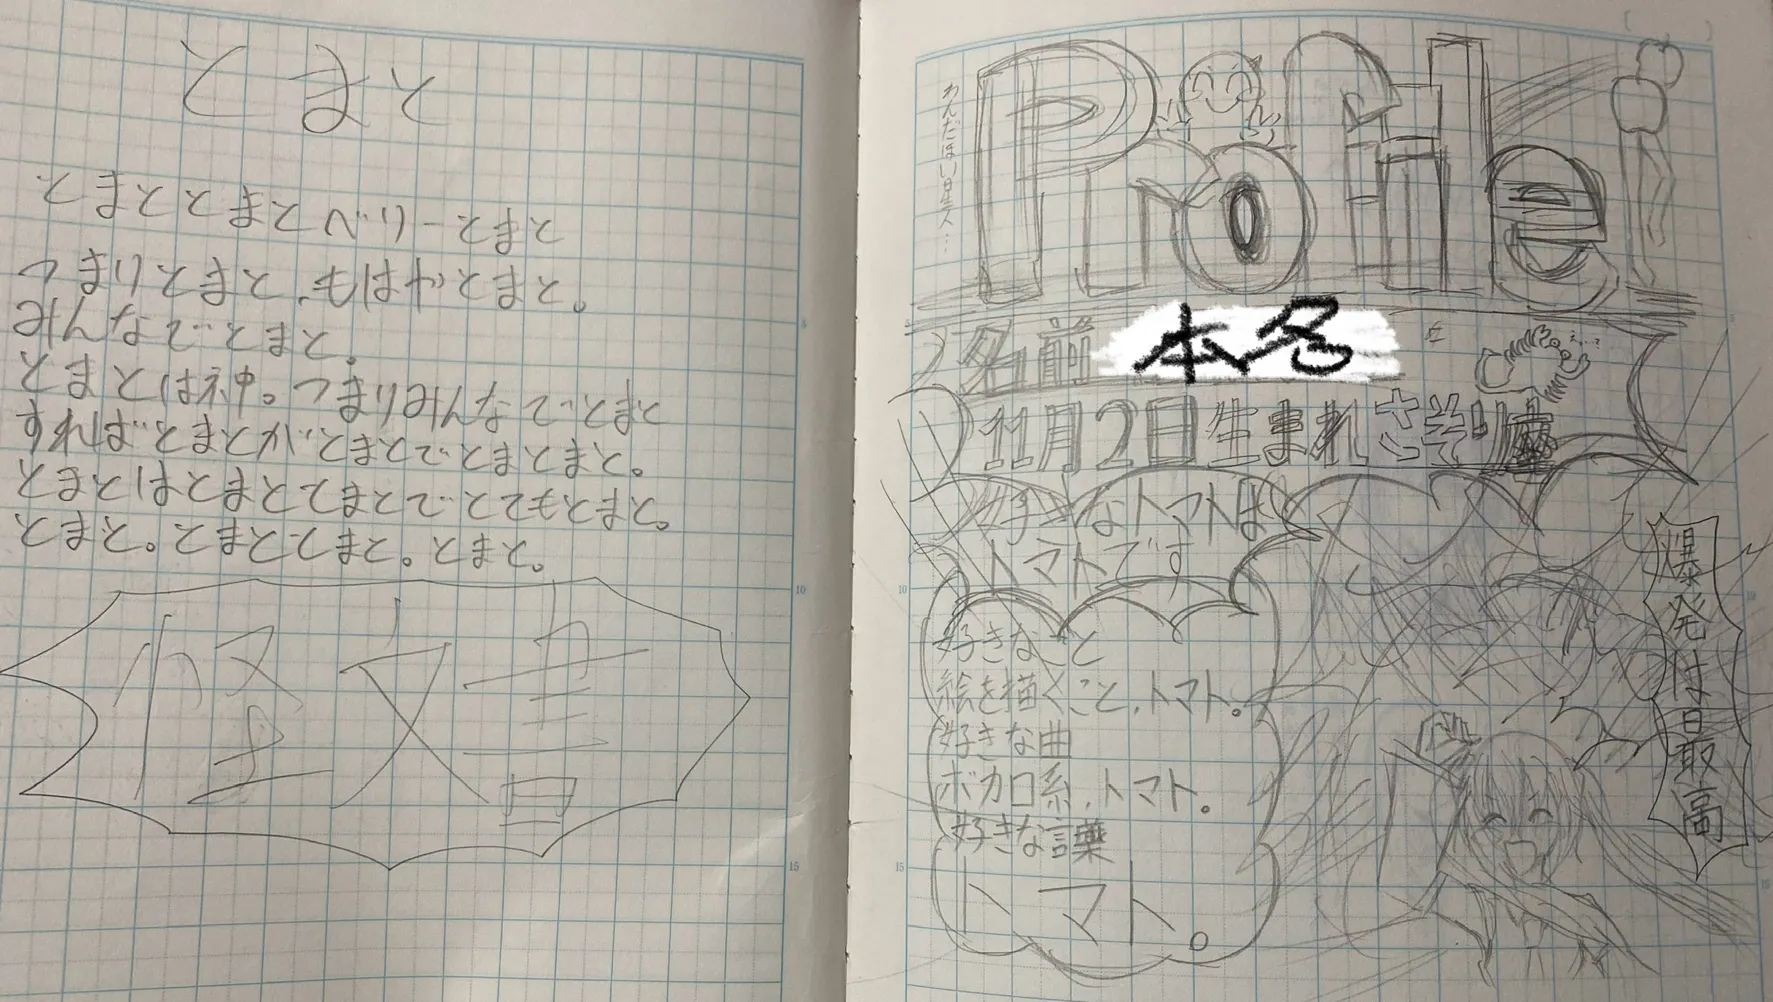 とまと
とまとととまとべりーとまと
てまりとまと、もはやとまと。
そんなでとまと。
とまとはね中。てまりそんなでとまと
すればとまとがとまとでとまとまと。
とまとはとまとてまとでとてもとまと。
とまと。とまととてまと。とまと。
怪文書
Profile
わんだほい星人…
名前 本名
11月2日生まれさそり座
好きなトマトは
トマトです
好きなこと
絵を描くこと、トマト。
好きな曲
ボカロ系、トマト。
好きな言葉
トマト。
爆発は最高